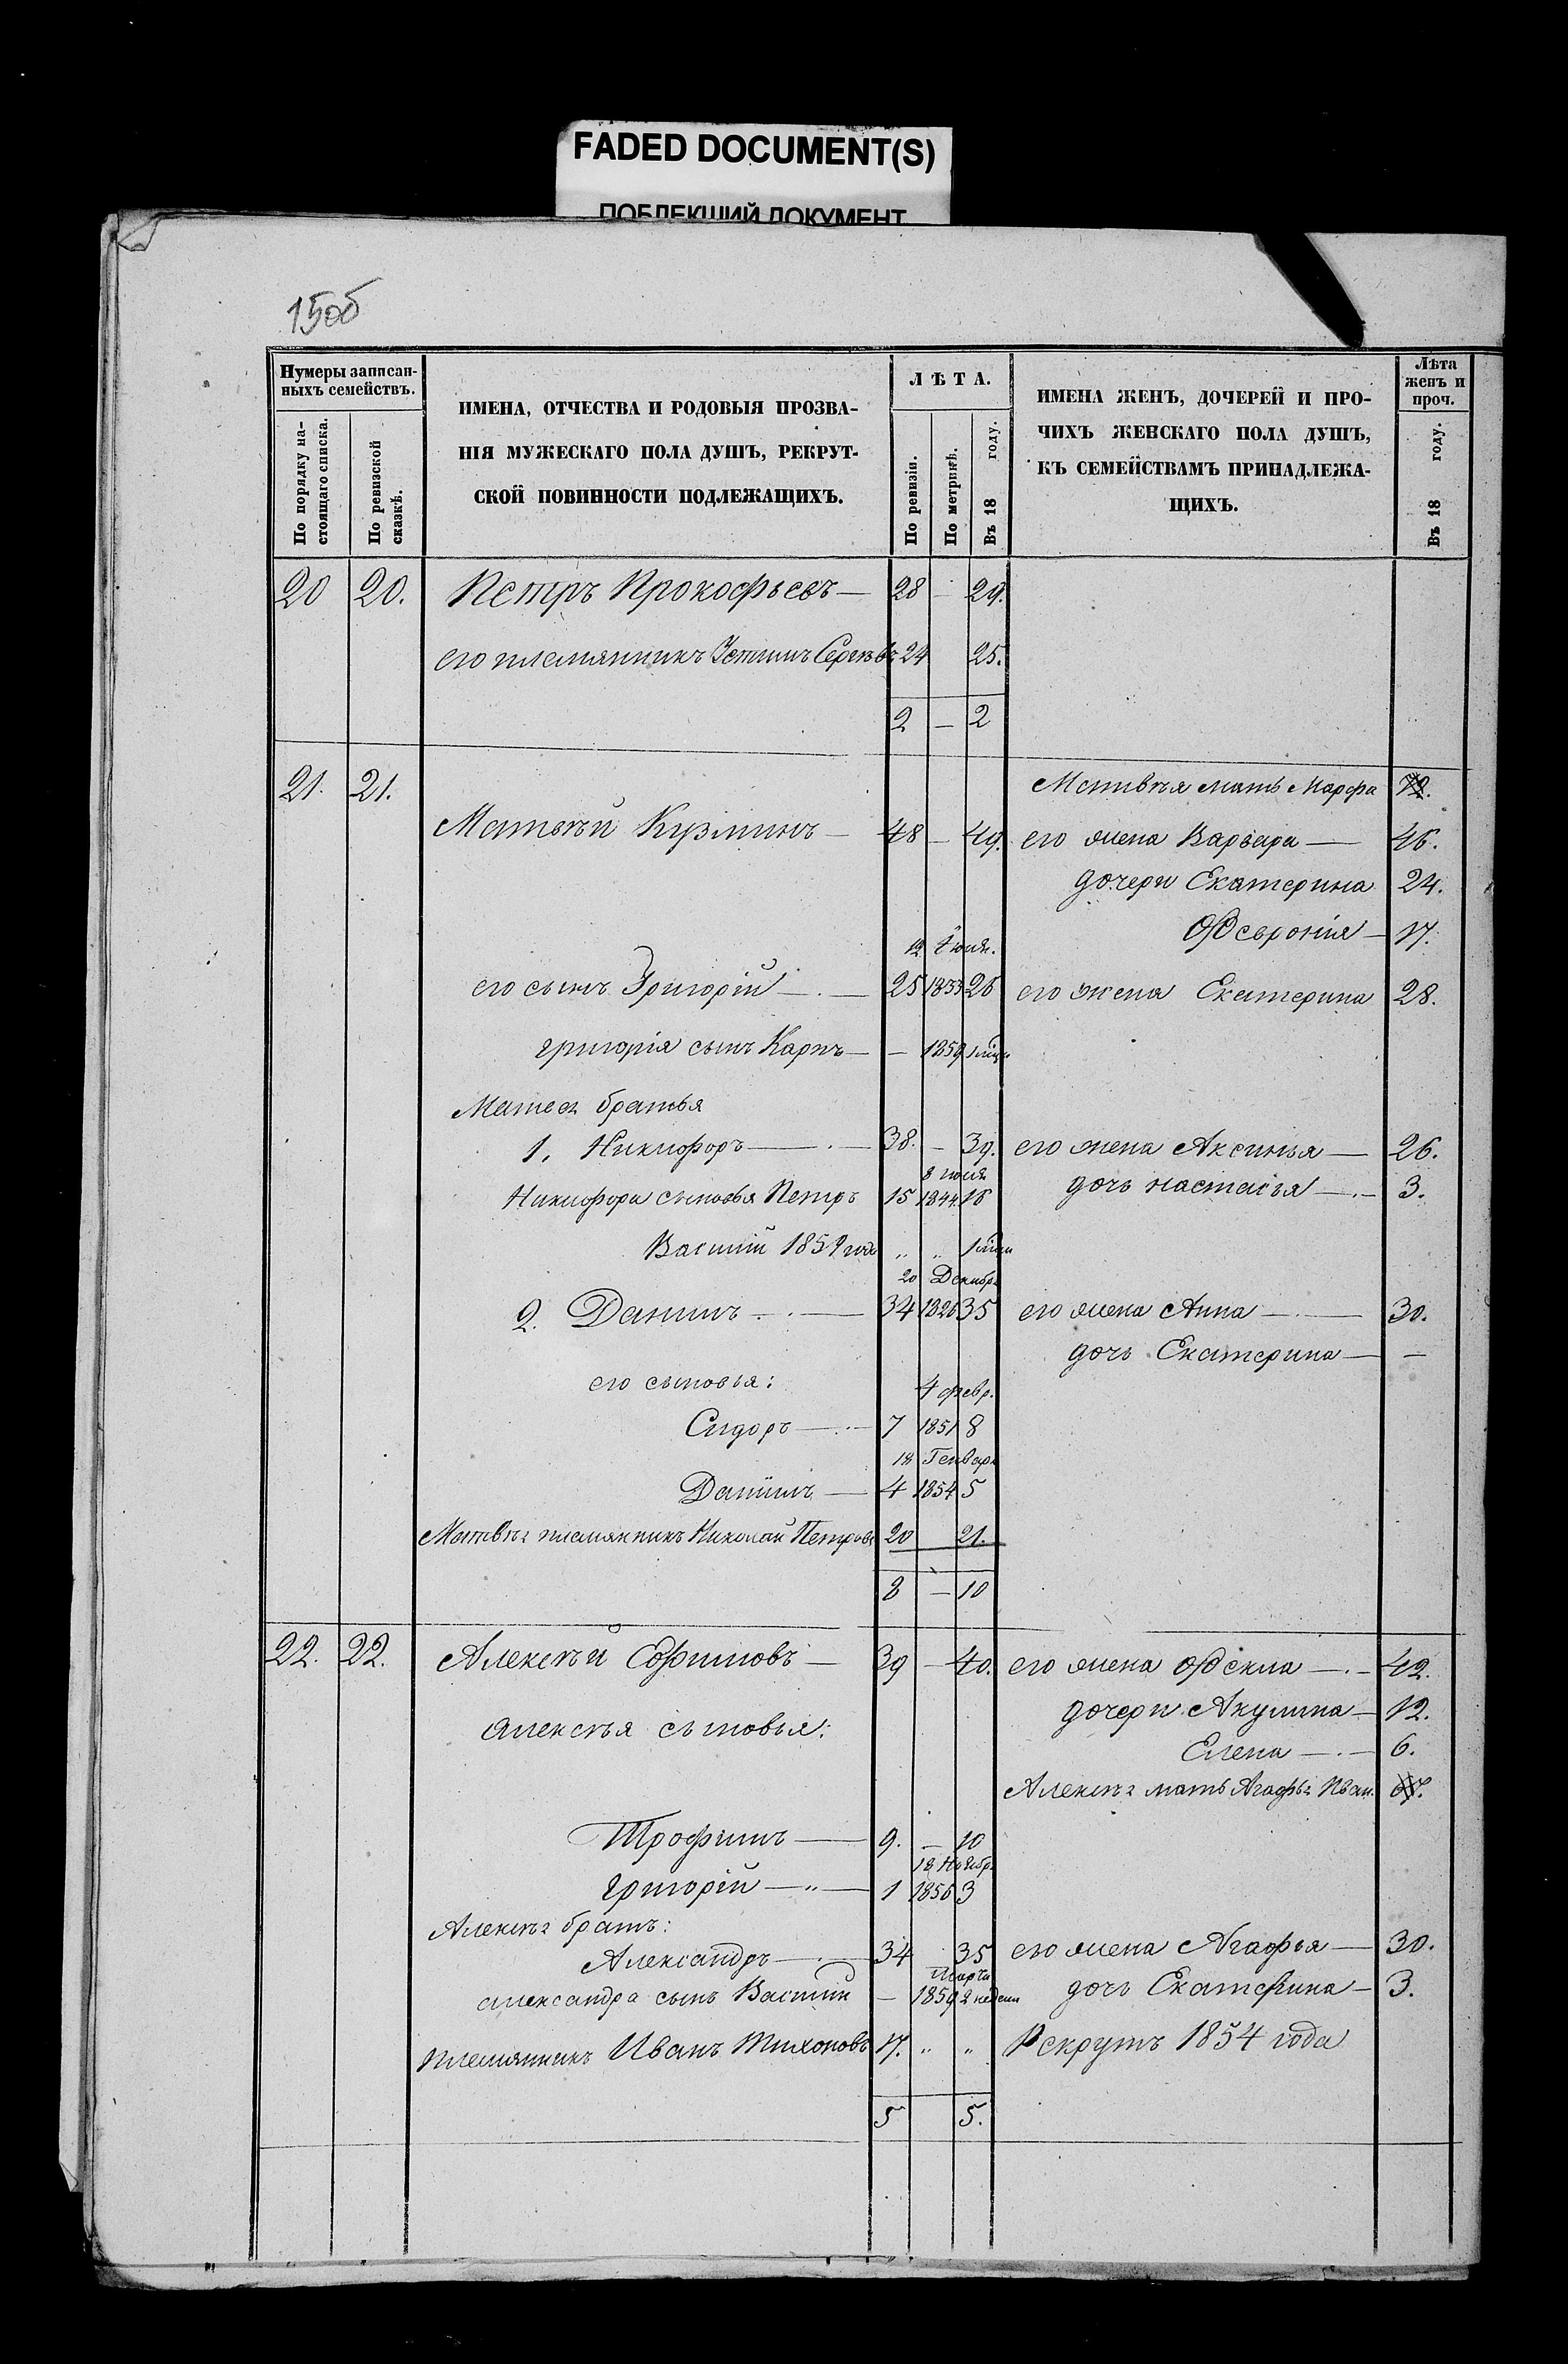 FADED DOCUMENT(S)
ПОБЛЕКШИЙ ДОКУМЕНТ
15об
Нумеры записан-
ныхъ семействъ.
По порядку на-
стоящаго списка.
По ревизской
сказкѣ.
ИМЕНА, ОТЧЕСТВА И РОДОВЫЯ ПРОЗВА-
НІЯ МУЖЕСКАГО ПОЛА ДУШЪ, РЕКРУТ-
СКОЙ ПОВИННОСТИ ПОДЛЕЖАЩИХЪ.
ЛѢТА.
По ревизіи.
По метрикѣ.
Въ 18 году.
ИМЕНА ЖЕНЪ, ДОЧЕРЕЙ И ПРО-
ЧИХЪ ЖЕНСКАГО ПОЛА ДУШЪ,
КЪ СЕМЕЙСТВАМЪ ПРИНАДЛЕЖА-
ЩИХЪ.
Лѣта
женъ и
проч.
Въ 18 году.
20 20. Петръ Прокофьевъ — 28 - 29.
его племянникъ Устинъ Сергѣевъ 24 25.
2 — 2
21. 21. Матвѣя мать Марфа
Матвѣй Кузминъ — 48 — 49. его жена Варвара — 46.
дочери Екатерина 24.
Ѳевронія — 17.
12 Іюля.
его сынъ Григорій — 25 1833 26 его жена Екатерина 28.
григорія сынъ Карпъ — — 1859
Матвѣя братья
1. Никифоръ — 38. — 39. его жена Аксинья — 26.
8 июля
Никифора сыновья Петръ 15 1844 16 дочь настасья — 3.
Василій 1859 года „ „
20 Декабр.
2. Данилъ — 34 1826 35 его жена Анна — 30.
дочь Екатерина — —
его сыновья: 4 февр.
Сидоръ — 7 1851 8
18 Генваря
Даніилъ — 4 1854 5
Матвѣя племянникъ Николай Петровъ 20 21.
8 — 10
22. 22. Алексѣй Ефимовъ — 39 — 40. его жена Ѳекла — 42.
дочери Акулина — 12.
алексѣя сыновья:
Елена — 6.
Алексѣя мать Агафья Иван.
Трофимъ — 9. — 10
18 Ноябр.
григорій — 1 1856 3
Алексѣя братъ:
Александръ — 34 35 его жена Агафья — 30.
Марта
александра сынъ Василій — 1859 2 недели дочь Екатерина — 3.
племянникъ Иванъ Тихоновъ 17. „ „ Рекрутъ 1854 года
5 5.